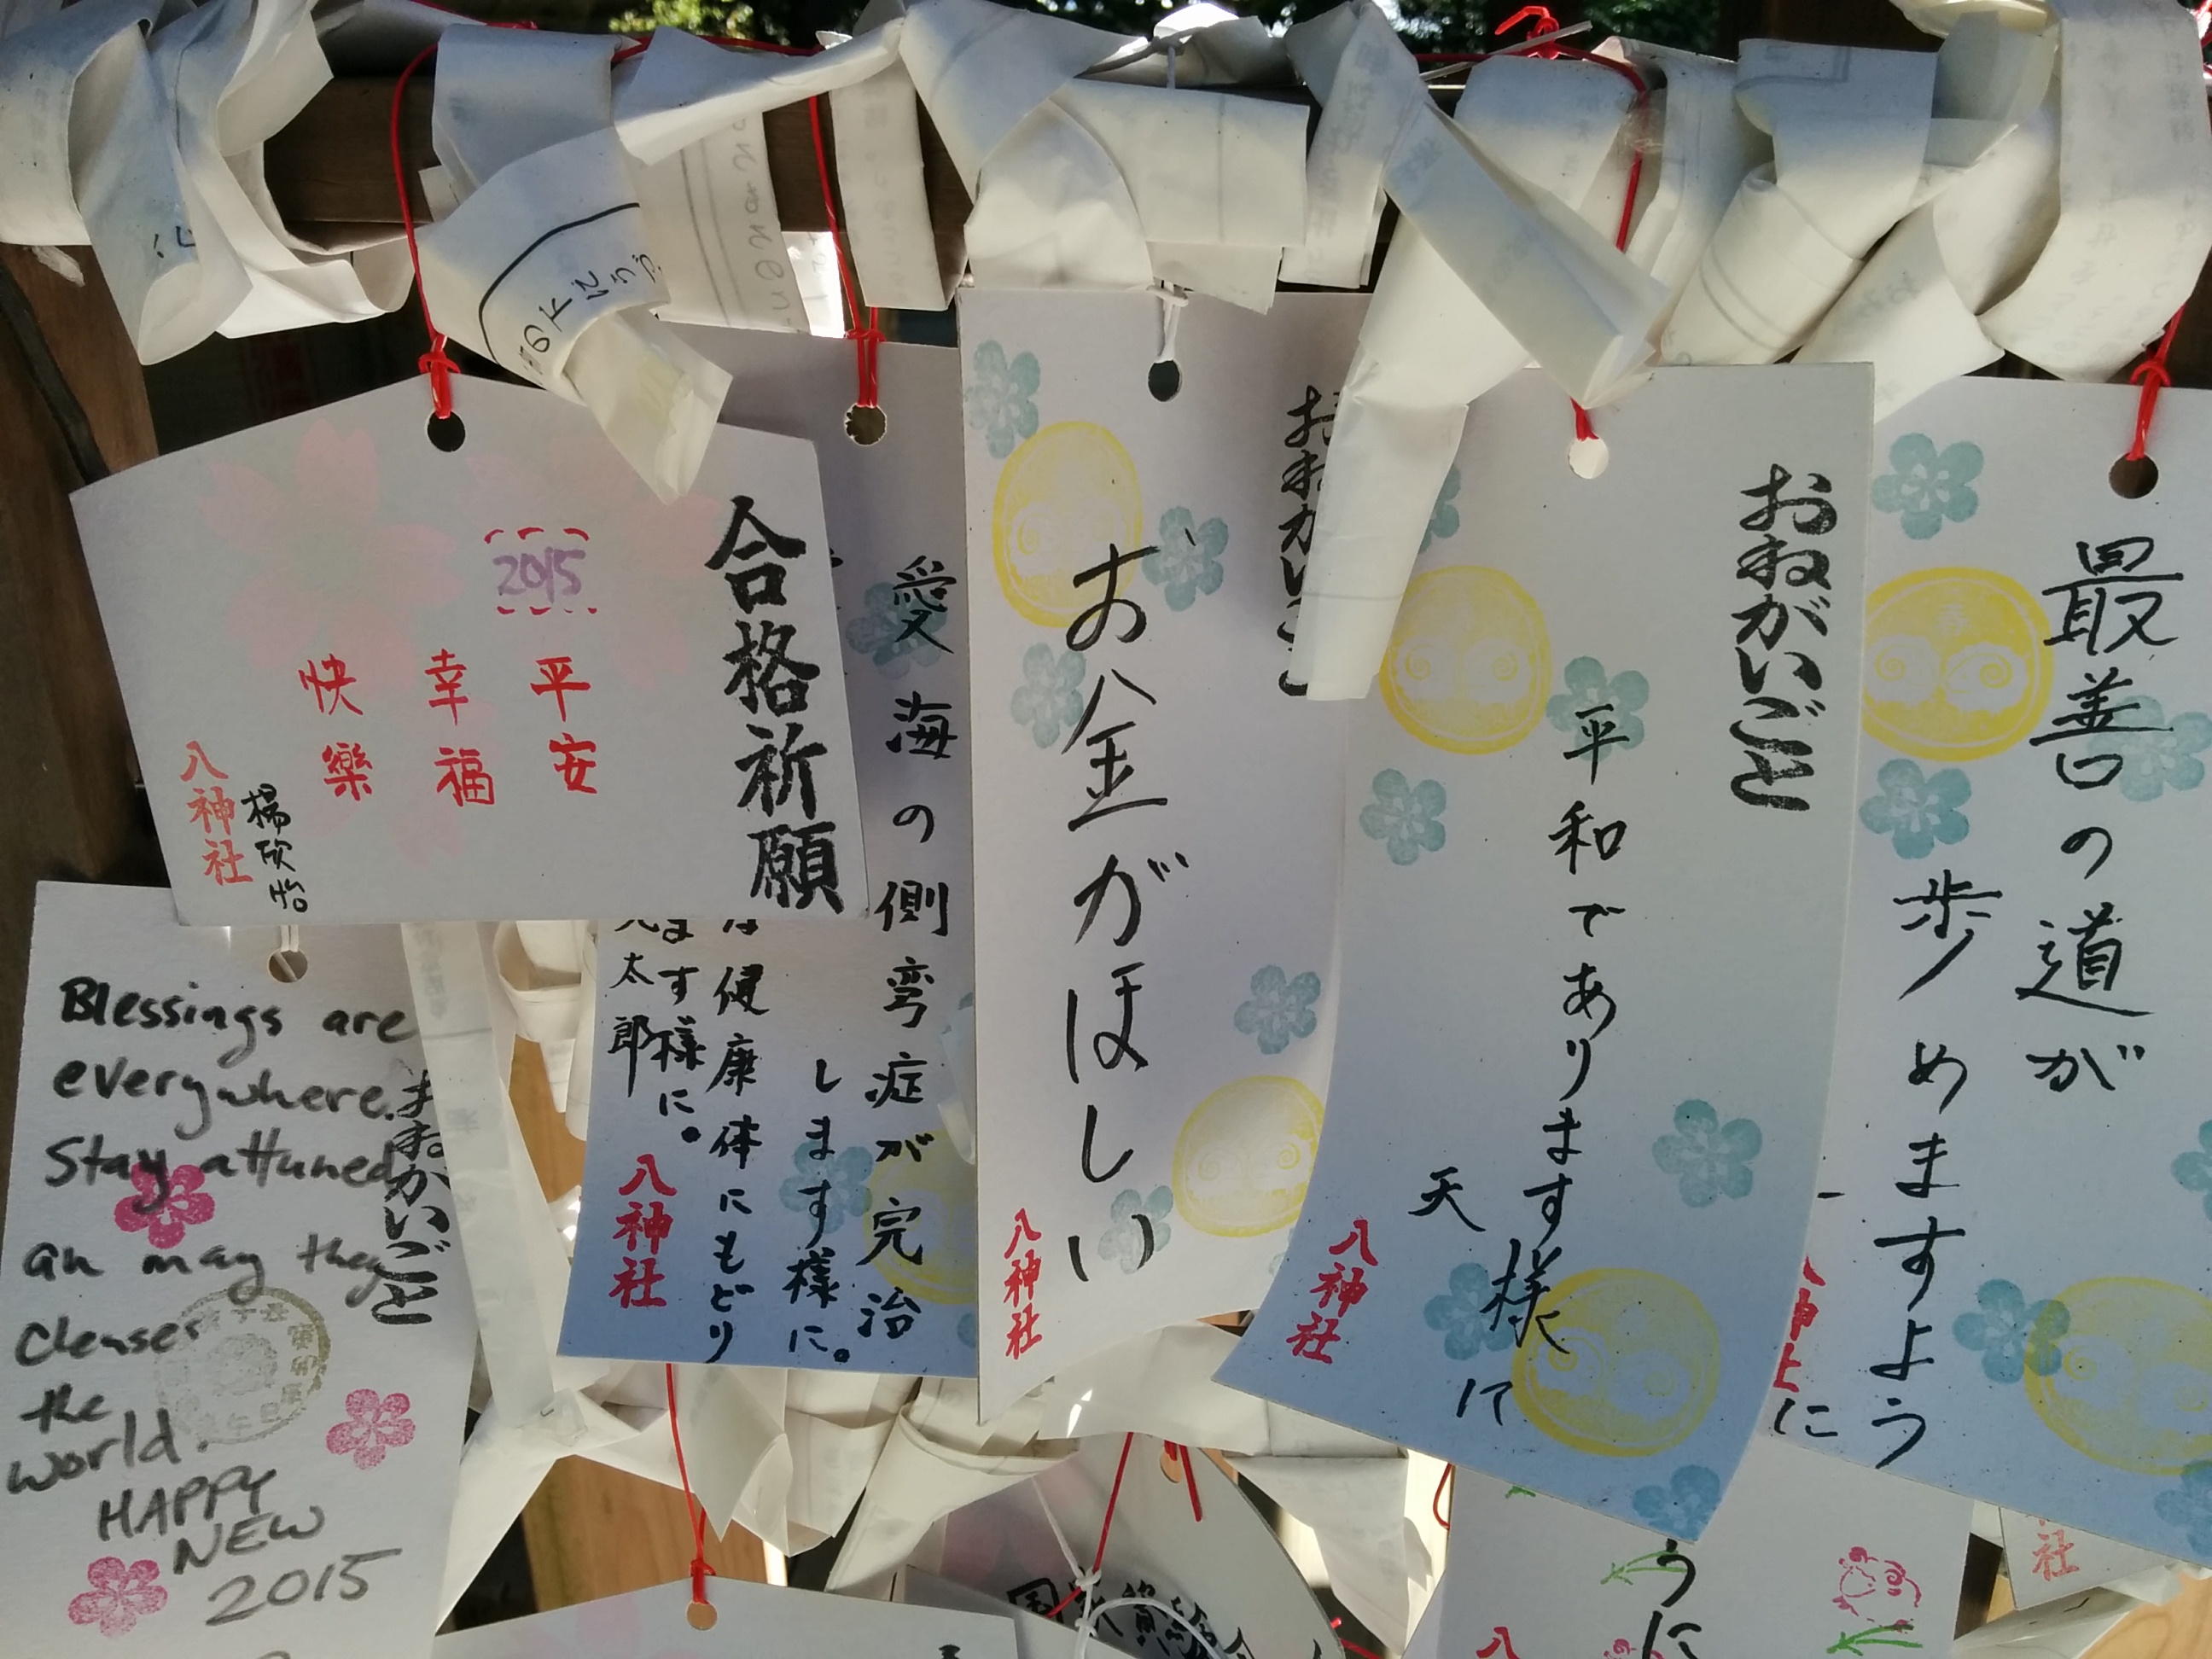 合格祈願
2015
平安
幸福
快樂
楊欣怡
八神社
愛海の側弯症が完治
します様に。
健康体にもどり
ます様に。
太郎
八神社
お金がほしい
八神社
おねがいごと
平和であります様に
天
八神社
最善の道が
歩めますよう
に
Blessings are
everywhere.
Stay attuned
an may they
Cleanser
the
world.
HAPPY
NEW
2015
おねがいごと
うに
八
社